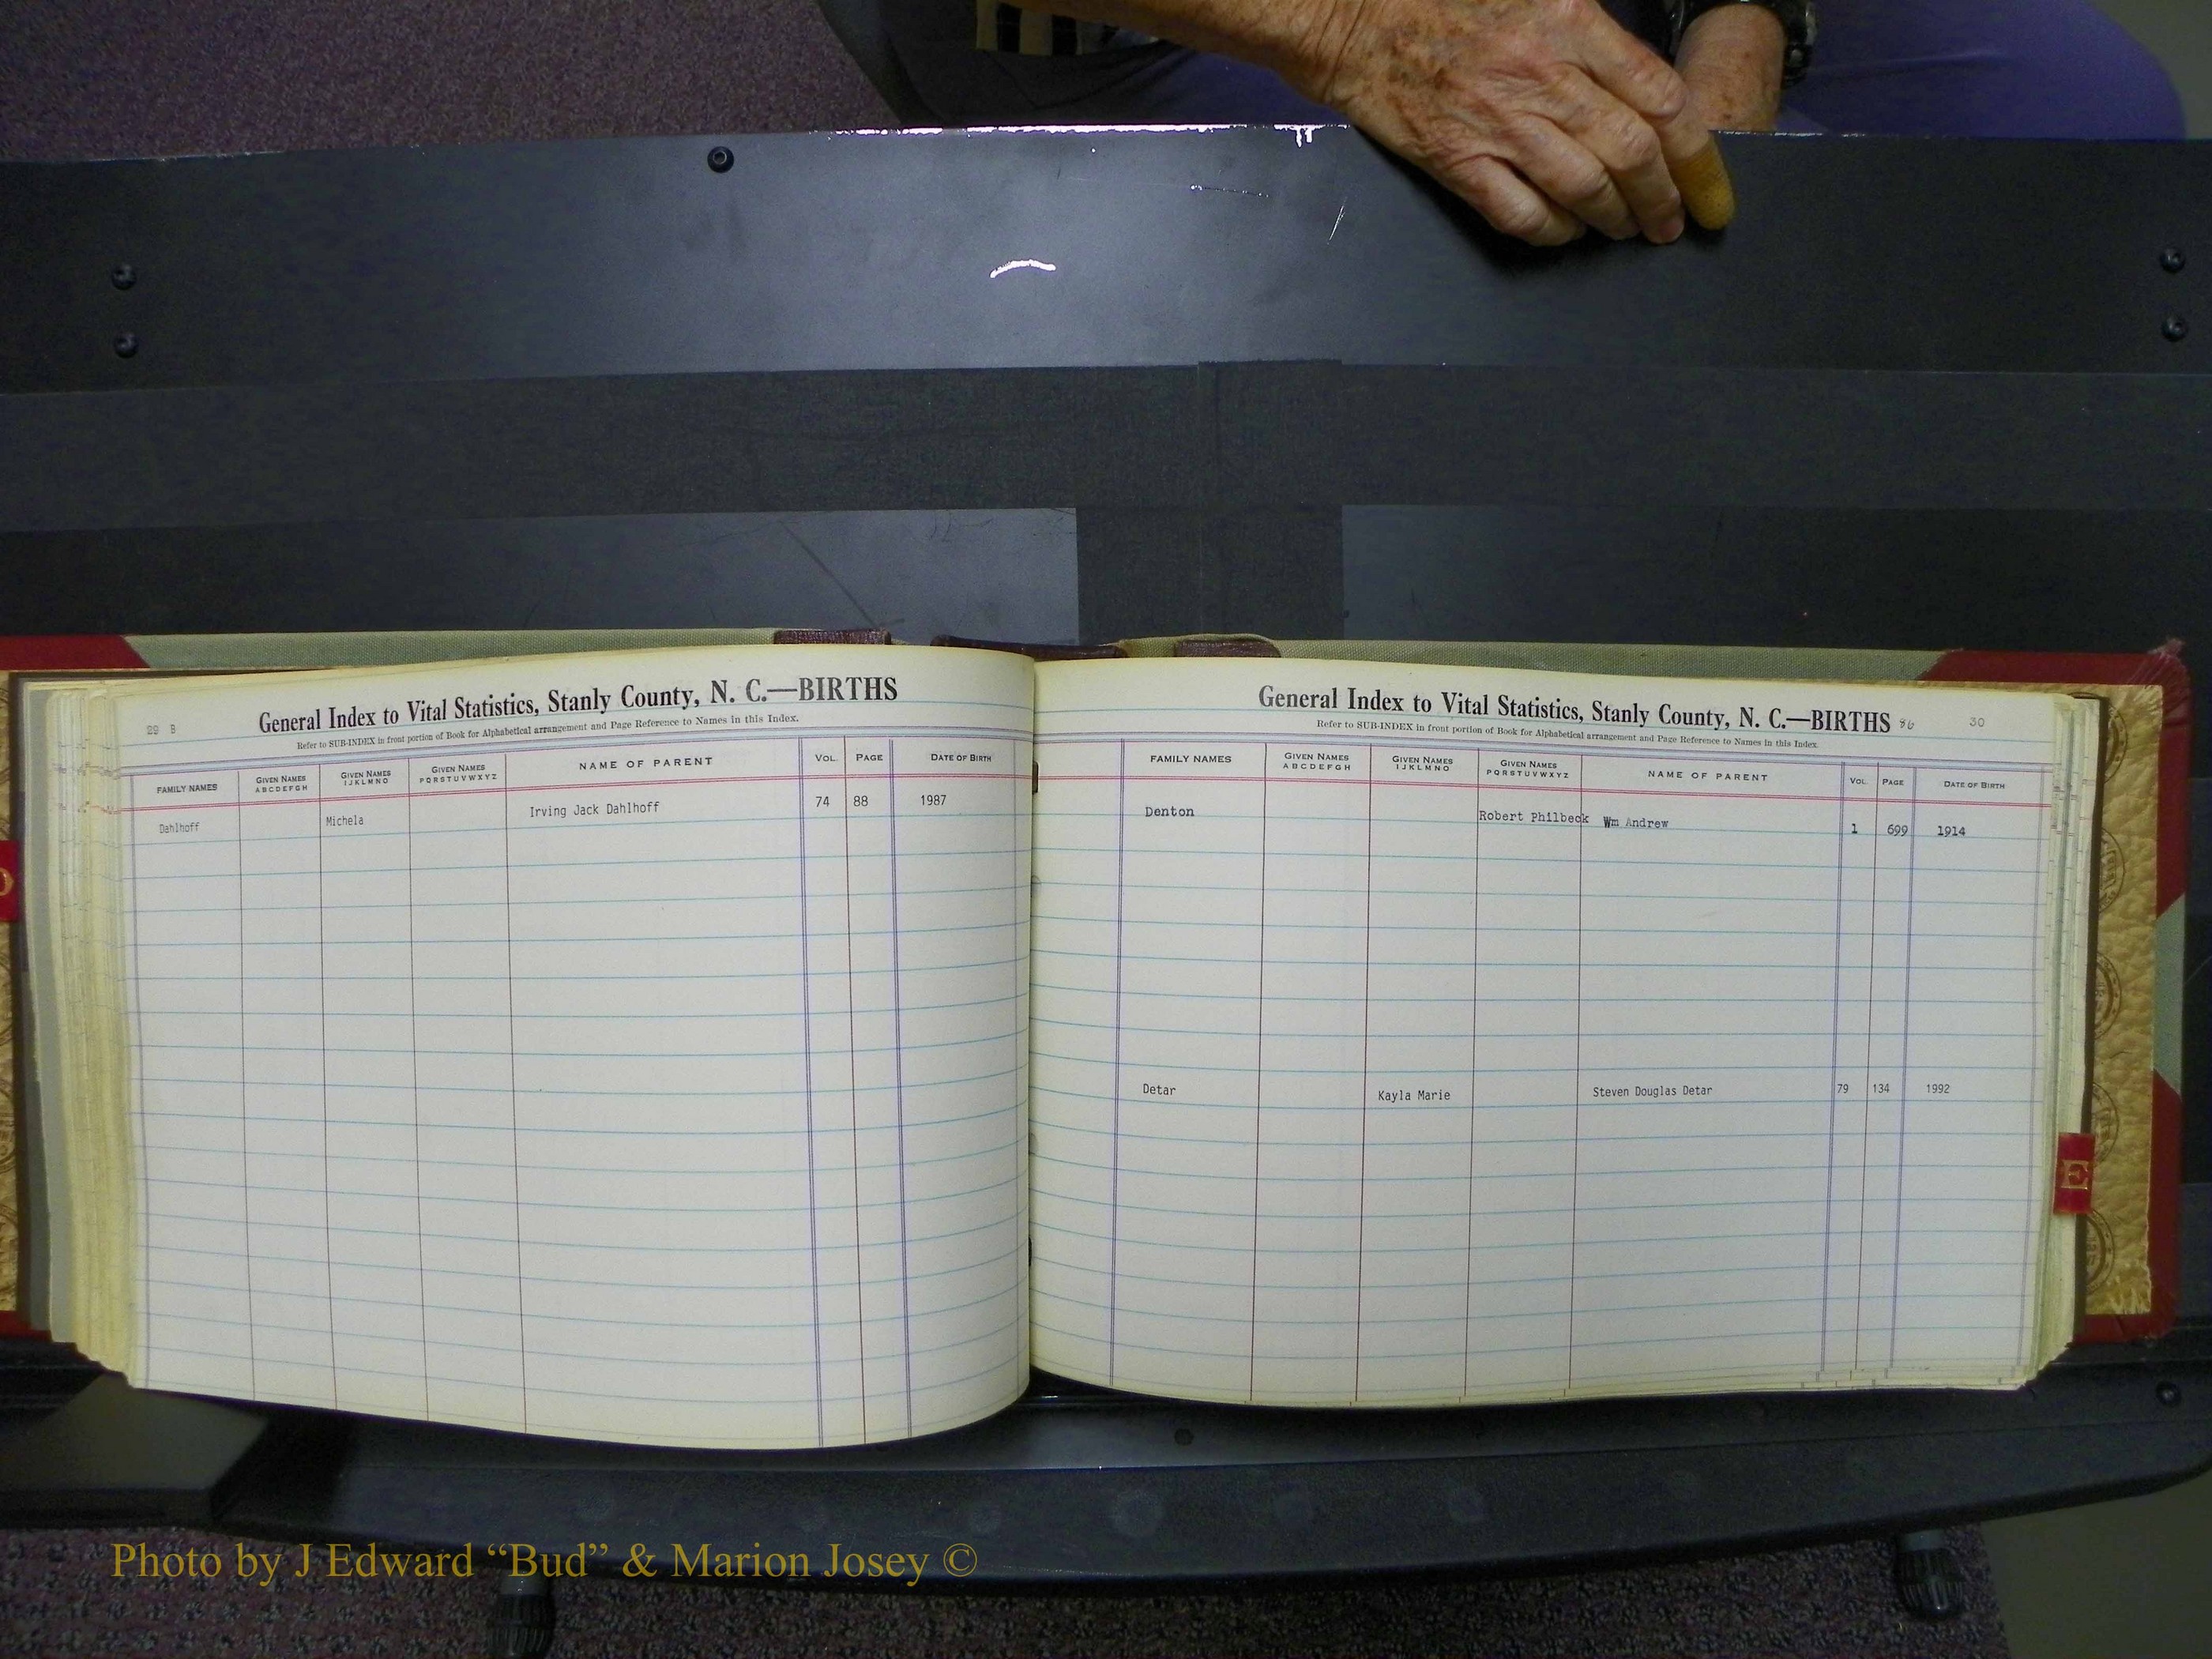 29 B
General Index to Vital Statistics, Stanly County, N. C.—BIRTHS
Refer to SUB-INDEX in front portion of Book for Alphabetical arrangement and Page Reference to Names in this Index.
FAMILY NAMES GIVEN NAMES ABCDEFGH GIVEN NAMES IJKLMNO GIVEN NAMES PQRSTUVWXYZ NAME OF PARENT VOL. PAGE DATE OF BIRTH
Dahlhoff Michela Irving Jack Dahlhoff 74 88 1987
General Index to Vital Statistics, Stanly County, N. C.—BIRTHS 86 30
Refer to SUB-INDEX in front portion of Book for Alphabetical arrangement and Page Reference to Names in this Index.
FAMILY NAMES GIVEN NAMES ABCDEFGH GIVEN NAMES IJKLMNO GIVEN NAMES PQRSTUVWXYZ NAME OF PARENT VOL. PAGE DATE OF BIRTH
Denton Robert Philbeck Wm Andrew 1 699 1914
Detar Kayla Marie Steven Douglas Detar 79 134 1992
E
Photo by J Edward “Bud” & Marion Josey ©